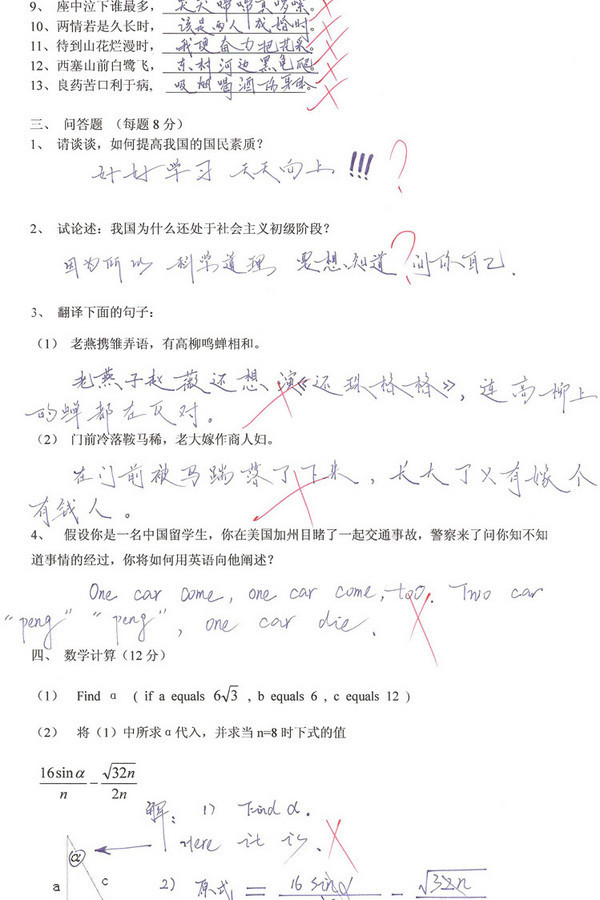 9、 座中泣下谁最多， 天天哗哗真哆嗦。
10、两情若是久长时， 该是两人成婚时。
11、待到山花烂漫时， 我便奋力把花采。
12、西塞山前白鹭飞， 东村河边黑龟爬。
13、良药苦口利于病， 吸烟喝酒伤身体。
三、 问答题 （每题 8 分）
1、 请谈谈，如何提高我国的国民素质？
好好学习 天天向上 !!! ?
2、 试论述：我国为什么还处于社会主义初级阶段？
因为所以 科学道理 要想知道 问你自己． ?
3、 翻译下面的句子：
（1） 老燕携雏弄语，有高柳鸣蝉相和。
老燕子赵薇还想演《还珠格格》，连高柳上
的蝉都在反对。
（2） 门前冷落鞍马稀，老大嫁作商人妇。
在门前被马踹落了下来，长大了又有嫁个
有钱人。
4、 假设你是一名中国留学生，你在美国加州目睹了一起交通事故，警察来了问你知不知
道事情的经过，你将如何用英语向他阐述？
One car come, one car come, too. Two car
"peng" "peng", one car die.
四、 数学计算（12 分）
（1） Find α （ if a equals 6√3 , b equals 6 , c equals 12 ）
（2） 将（1）中所求α代入，并求当 n=8 时下式的值
16sinα/n − √32n/2n
解： 1) Find α.
Here it is.
α
a c
2) 原式 = 16 sinα − √32n